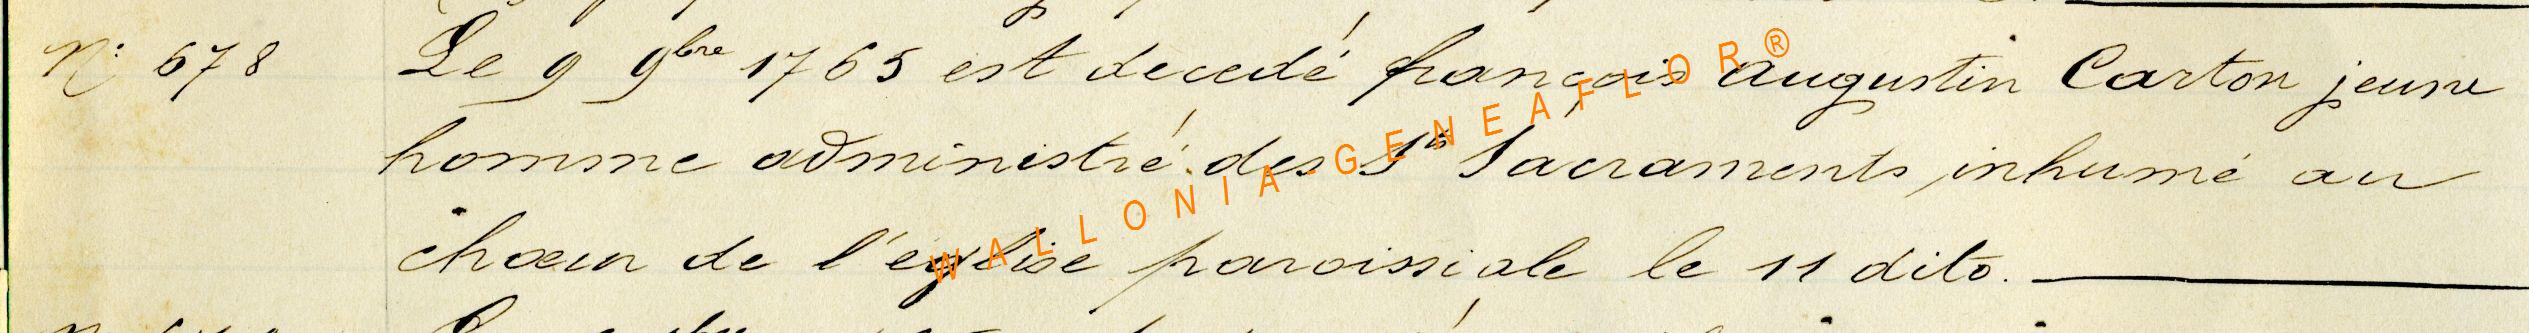 N° 678 Le 9 9bre 1765 est decedé françois augustin Carton jeune
homme administré des Sts Sacraments, inhumé au
chœur de l'eglise paroissiale le 11 dito.
WALLONIA-GENEAFLOR®